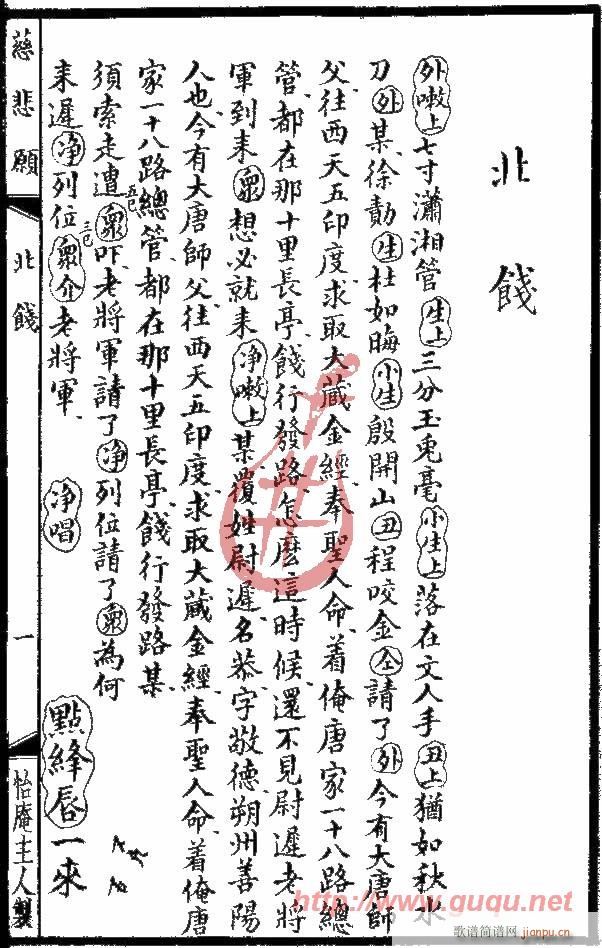 北餞
外嗽上七寸瀟湘管生上三分玉兎毫小生上落在文人手丑上猶如秋水
刀外某徐勣生杜如晦小生殷開山丑程咬金仝請了外今有大唐師
父往西天五印度求取大藏金經奉聖人命着俺唐家一十八路總
管都在那十里長亭餞行發路怎麼這時候還不見尉遲老將
軍到來衆想必就来淨嗽上某覆姓尉遲名恭字敬德朔州善陽
人也今有大唐師父往西天五印度求取大藏金經奉聖人命着俺唐
家一十八路總管都在那十里長亭餞行發路某
須索走遭衆吓老將軍請了淨列位請了衆為何
来遲淨列位衆介老將軍 淨唱 點絳唇一來
慈悲願 北餞 一 怡庵主人製
http://www.guqu.net
歌谱简谱网
jianpu.cn